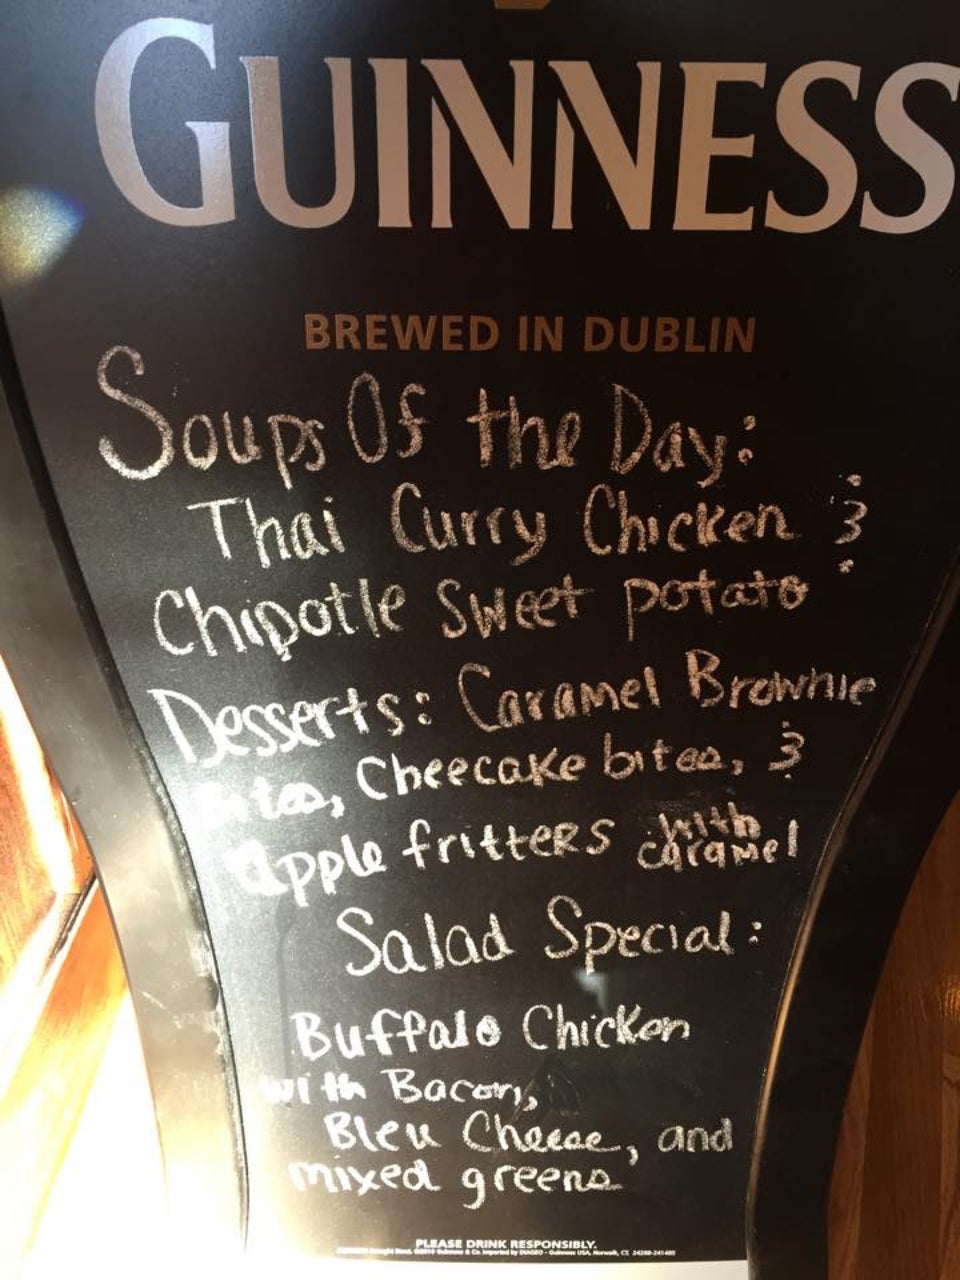 GUINNESS
BREWED IN DUBLIN
Soups Of the Day:
Thai Curry Chicken &
Chipotle Sweet potato
Desserts: Caramel Brownie
bites, Cheecake bites, &
apple fritters with
caramel
Salad Special:
Buffalo Chicken
with Bacon,
Bleu Cheese, and
mixed greens
PLEASE DRINK RESPONSIBLY.